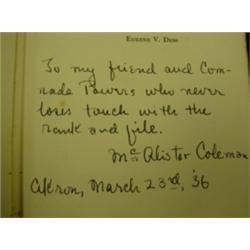 EUGENE V. DEBS
To my friend and Com-
rade Powers who never
loses touch with the
rank and file.
McAlister Coleman
Akron, March 23rd, '36